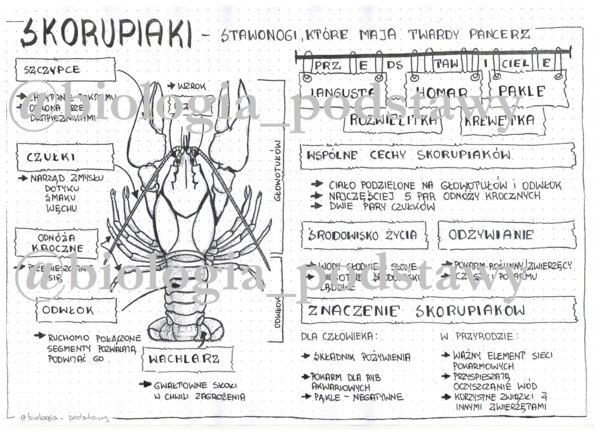 SKORUPIAKI - STAWONOGI, KTÓRE MAJĄ TWARDY PANCERZ
SZCZYPCE
CHWYTANIE POKARMU
OBRONA PRZED
DRAPIEŻNIKAMI
WZROK
CZUŁKI
NARZĄD ZMYSŁU
DOTYKU
SMAKU
WĘCHU
ODNÓŻA
KROCZNE
PRZEMIESZCZANIE
SIĘ
ODWŁOK
RUCHOMO POŁĄCZONE
SEGMENTY POZWALAJĄ
PODWIJAĆ GO.
WACHLARZ
GWAŁTOWNE SKOKI
W CHWILI ZAGROŻENIA
GŁOWOTUŁÓW
ODWŁOK
PRZEDSTAWICIELE
LANGUSTA HOMAR PĄKLE
ROZWIELITKA KREWETKA
WSPÓLNE CECHY SKORUPIAKÓW
CIAŁO PODZIELONE NA GŁOWOTUŁÓW I ODWŁOK
NAJCZĘŚCIEJ 5 PAR ODNÓŻY KROCZNYCH
DWIE PARY CZUŁKÓW
ŚRODOWISKO ŻYCIA
WODY SŁODKIE, SŁONE
WILGOTNE ŚRODOWISKO
LĄDOWE
ODŻYWIANIE
POKARM ROŚLINNY/ZWIERZĘCY
CZĄSTKI POKARMU
ZNACZENIE SKORUPIAKÓW
DLA CZŁOWIEKA:
SKŁADNIK POŻYWIENIA
POKARM DLA RYB
AKWARIOWYCH
PĄKLE - NEGATYWNE
W PRZYRODZIE:
WAŻNY ELEMENT SIECI
POKARMOWYCH
PRZYSPIESZAJĄ
OCZYSZCZANIE WÓD
KORZYSTNE ZWIĄZKI Z
INNYMI ZWIERZĘTAMI
@biologia_podstawy
@biologia_podstawy
@biologia_podstawy